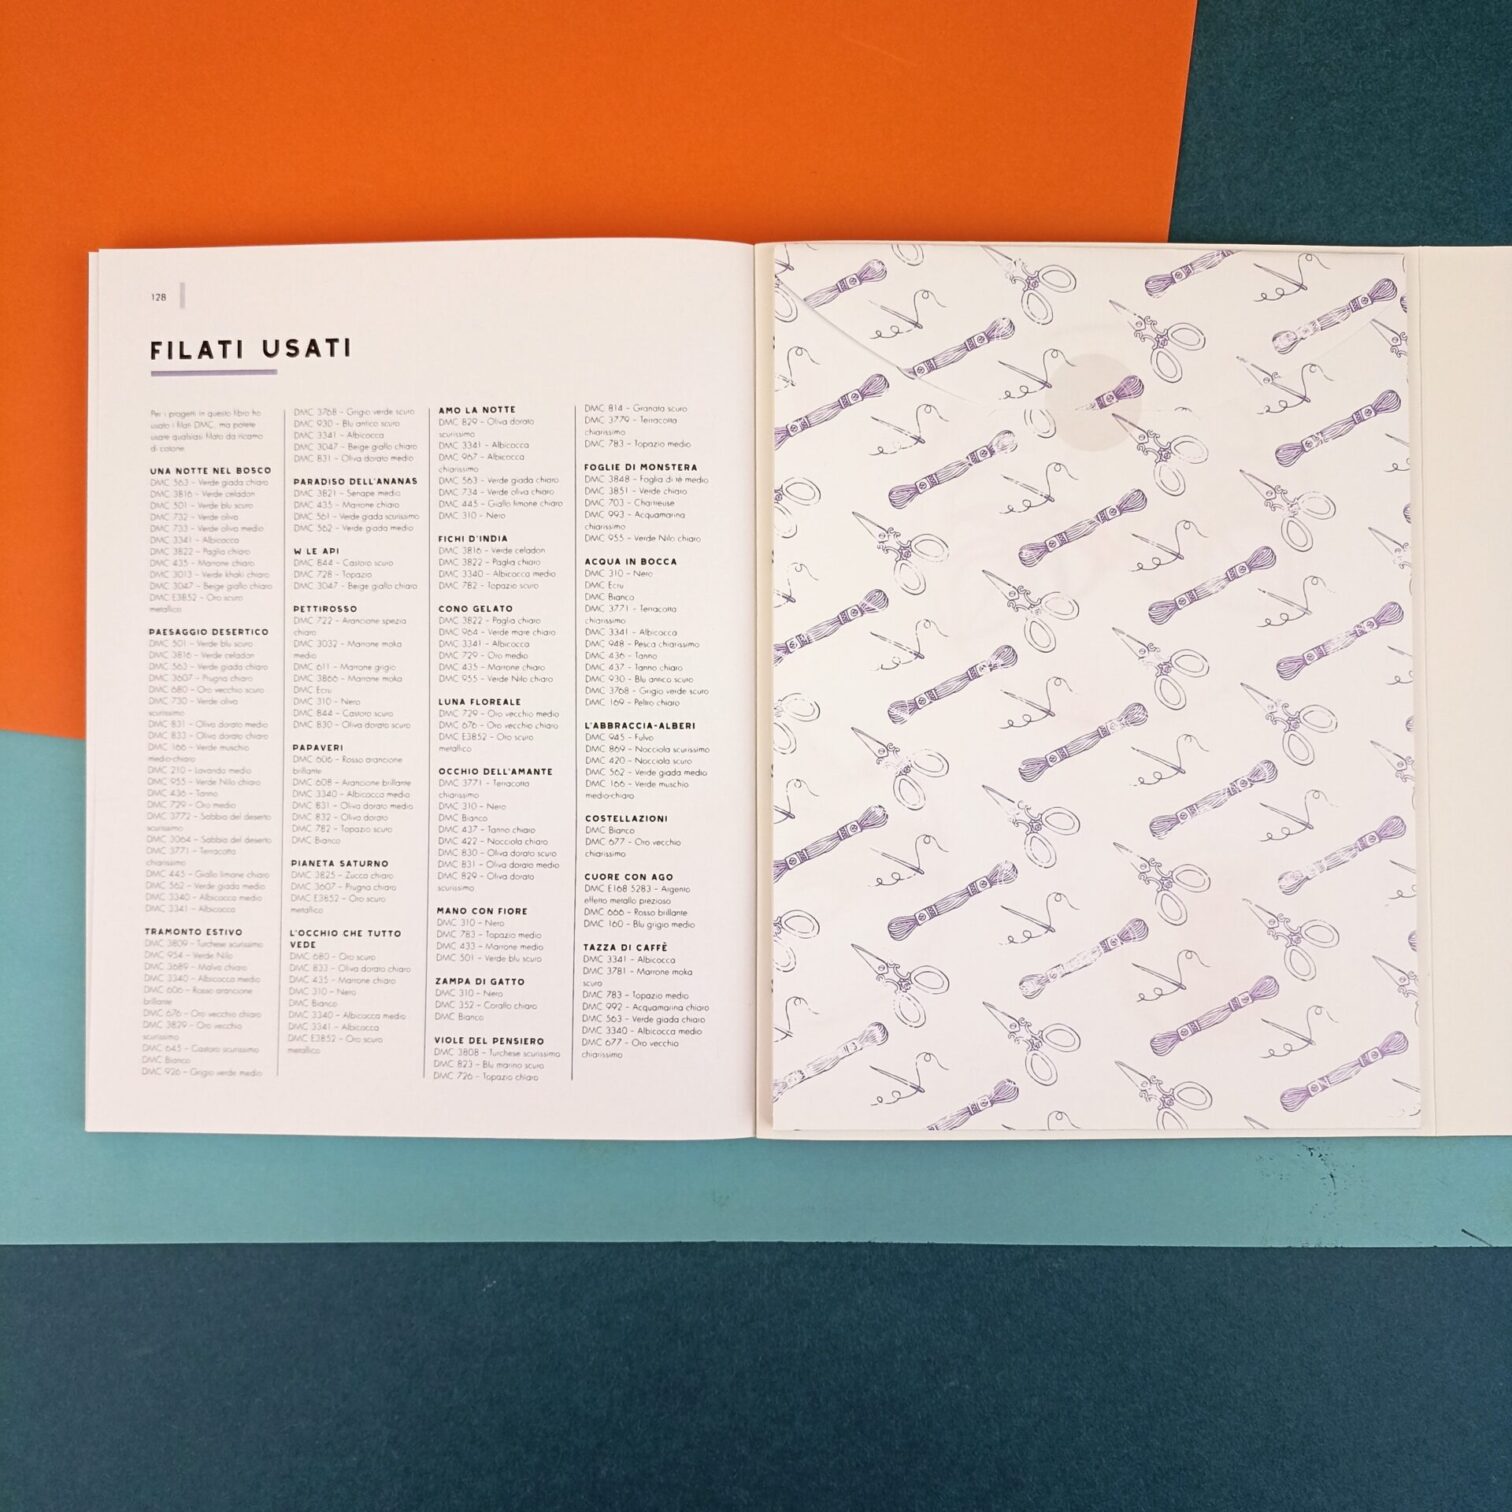 128
FILATI USATI
Per i progetti in questo libro ho
usato i filati DMC, ma potete
usare qualsiasi filato da ricamo
di cotone.
UNA NOTTE NEL BOSCO
DMC 563 - Verde giada chiaro
DMC 3816 - Verde celadon
DMC 501 - Verde blu scuro
DMC 732 - Verde oliva
DMC 733 - Verde oliva medio
DMC 3341 - Albicocca
DMC 3822 - Paglia chiaro
DMC 435 - Marrone chiaro
DMC 3013 - Verde khaki chiaro
DMC 3047 - Beige giallo chiaro
DMC E3852 - Oro scuro
metallico
PAESAGGIO DESERTICO
DMC 501 - Verde blu scuro
DMC 3816 - Verde celadon
DMC 563 - Verde giada chiaro
DMC 3607 - Prugna chiaro
DMC 680 - Oro vecchio scuro
DMC 730 - Verde oliva
scurissimo
DMC 831 - Oliva dorato medio
DMC 833 - Oliva dorato chiaro
DMC 166 - Verde muschio
medio-chiaro
DMC 210 - Lavanda medio
DMC 955 - Verde Nilo chiaro
DMC 436 - Tanno
DMC 729 - Oro medio
DMC 3772 - Sabbia del deserto
scurissimo
DMC 3064 - Sabbia del deserto
DMC 3771 - Terracotta
chiarissimo
DMC 445 - Giallo limone chiaro
DMC 562 - Verde giada medio
DMC 3340 - Albicocca medio
DMC 3341 - Albicocca
TRAMONTO ESTIVO
DMC 3809 - Turchese scurissimo
DMC 954 - Verde Nilo
DMC 3689 - Malva chiaro
DMC 3340 - Albicocca medio
DMC 606 - Rosso arancione
brillante
DMC 676 - Oro vecchio chiaro
DMC 3829 - Oro vecchio
scurissimo
DMC 645 - Castoro scurissimo
DMC Bianco
DMC 926 - Grigio verde medio
DMC 3768 - Grigio verde scuro
DMC 930 - Blu antico scuro
DMC 3341 - Albicocca
DMC 3047 - Beige giallo chiaro
DMC 831 - Oliva dorato medio
PARADISO DELL'ANANAS
DMC 3821 - Senape medio
DMC 435 - Marrone chiaro
DMC 561 - Verde giada scurissimo
DMC 562 - Verde giada medio
W LE API
DMC 844 - Castoro scuro
DMC 728 - Topazio
DMC 3047 - Beige giallo chiaro
PETTIROSSO
DMC 722 - Arancione spezia
chiaro
DMC 3032 - Marrone moka
medio
DMC 611 - Marrone grigio
DMC 3866 - Marrone moka
DMC Ecru
DMC 310 - Nero
DMC 844 - Castoro scuro
DMC 830 - Oliva dorato scuro
PAPAVERI
DMC 606 - Rosso arancione
brillante
DMC 608 - Arancione brillante
DMC 3340 - Albicocca medio
DMC 831 - Oliva dorato medio
DMC 832 - Oliva dorato
DMC 782 - Topazio scuro
DMC Bianco
PIANETA SATURNO
DMC 3825 - Zucca chiaro
DMC 3607 - Prugna chiaro
DMC E3852 - Oro scuro
metallico
L'OCCHIO CHE TUTTO
VEDE
DMC 680 - Oro scuro
DMC 833 - Oliva dorato chiaro
DMC 435 - Marrone chiaro
DMC 310 - Nero
DMC Bianco
DMC 3340 - Albicocca medio
DMC 3341 - Albicocca
DMC E3852 - Oro scuro
metallico
AMO LA NOTTE
DMC 829 - Oliva dorato
scurissimo
DMC 3341 - Albicocca
DMC 967 - Albicocca
chiarissimo
DMC 563 - Verde giada chiaro
DMC 734 - Verde oliva chiaro
DMC 445 - Giallo limone chiaro
DMC 310 - Nero
FICHI D'INDIA
DMC 3816 - Verde celadon
DMC 3822 - Paglia chiaro
DMC 3340 - Albicocca medio
DMC 782 - Topazio scuro
CONO GELATO
DMC 3822 - Paglia chiaro
DMC 964 - Verde mare chiaro
DMC 3341 - Albicocca
DMC 729 - Oro medio
DMC 435 - Marrone chiaro
DMC 955 - Verde Nilo chiaro
LUNA FLOREALE
DMC 729 - Oro vecchio medio
DMC 676 - Oro vecchio chiaro
DMC E3852 - Oro scuro
metallico
OCCHIO DELL'AMANTE
DMC 3771 - Terracotta
chiarissimo
DMC 310 - Nero
DMC Bianco
DMC 437 - Tanno chiaro
DMC 422 - Nocciola chiaro
DMC 830 - Oliva dorato scuro
DMC 831 - Oliva dorato medio
DMC 829 - Oliva dorato
scurissimo
MANO CON FIORE
DMC 310 - Nero
DMC 783 - Topazio medio
DMC 433 - Marrone medio
DMC 501 - Verde blu scuro
ZAMPA DI GATTO
DMC 310 - Nero
DMC 352 - Corallo chiaro
DMC Bianco
VIOLE DEL PENSIERO
DMC 3808 - Turchese scurissimo
DMC 823 - Blu marino scuro
DMC 726 - Topazio chiaro
DMC 814 - Granata scuro
DMC 3779 - Terracotta
chiarissimo
DMC 783 - Topazio medio
FOGLIE DI MONSTERA
DMC 3848 - Foglia di tè medio
DMC 3851 - Verde chiaro
DMC 703 - Chartreuse
DMC 993 - Acquamarina
chiarissimo
DMC 955 - Verde Nilo chiaro
ACQUA IN BOCCA
DMC 310 - Nero
DMC Ecru
DMC Bianco
DMC 3771 - Terracotta
chiarissimo
DMC 3341 - Albicocca
DMC 948 - Pesca chiarissimo
DMC 436 - Tanno
DMC 437 - Tanno chiaro
DMC 930 - Blu antico scuro
DMC 3768 - Grigio verde scuro
DMC 169 - Peltro chiaro
L'ABBRACCIA-ALBERI
DMC 945 - Fulvo
DMC 869 - Nocciola scurissimo
DMC 420 - Nocciola scuro
DMC 562 - Verde giada medio
DMC 166 - Verde muschio
medio-chiaro
COSTELLAZIONI
DMC Bianco
DMC 677 - Oro vecchio
chiarissimo
CUORE CON AGO
DMC E168 5283 - Argento
effetto metallo prezioso
DMC 666 - Rosso brillante
DMC 160 - Blu grigio medio
TAZZA DI CAFFÈ
DMC 3341 - Albicocca
DMC 3781 - Marrone moka
scuro
DMC 783 - Topazio medio
DMC 992 - Acquamarina chiaro
DMC 563 - Verde giada chiaro
DMC 3340 - Albicocca medio
DMC 677 - Oro vecchio
chiarissimo